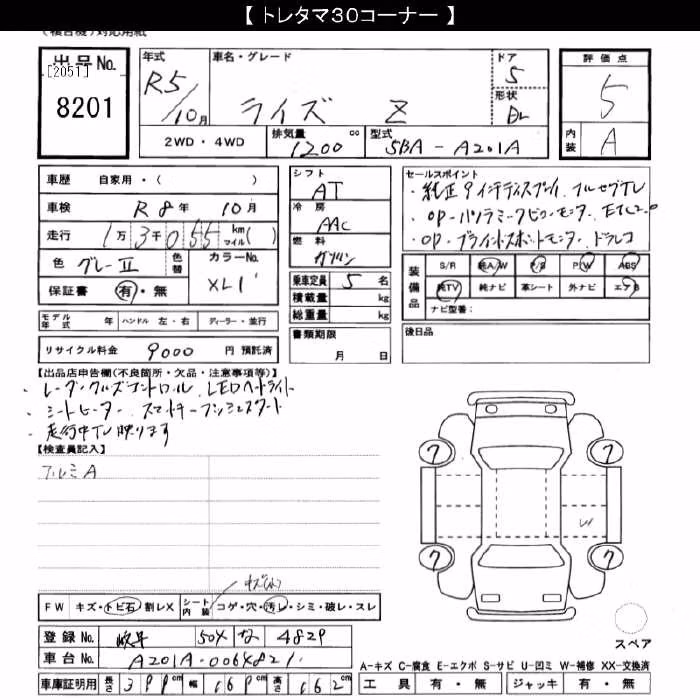 【 トレタマ30コーナー 】
(複合機)対応用紙
出品No. [2051] 8201
年式 R5/10月
車名・グレード ライズ Z
ドア 5
形状
2WD・4WD
排気量 1200 cc
型式 5BA-A201A
評価点 5
内装 A
車歴 自家用・( )
車検 R8年 10月
走行 1万3千055 km マイル( )
色 グレーⅡ 色替
カラーNo. XL1
保証書 有・無
シフト AT
冷房 AAC
燃料 ガソリン
乗車定員 5 名
積載量 kg
総重量 kg
セールスポイント
・純正9インチディスプレイ フルセグTV
・OP-パノラミックビューモニター ETC2.0
・OP-ブラインドスポットモニター ドラレコ
装備品
S/R 純A/W P/S P/W ABS
純TV 純ナビ 革シート 外ナビ エアB
ナビ型番:
モデル年式 年 ハンドル 左・右 ディーラー・並行
リサイクル料金 9000 円 預託済
書類期限 月 日
後日品
【出品店申告欄(不良箇所・欠品・注意事項等)】
・レーダークルーズコントロール LEDヘッドライト
・シートヒーター スマートキープッシュスタート
・走行中TV映ります
【検査員記入】
アルミA
7 7
W
7 7
キズ(小)
FW キズ・トビ石・割レX シート内装 コゲ・穴・汚レ・シミ・破レ・スレ
登録No. 岐阜 50X な 4829
車台No. A201A-006X821
車庫証明用 長さ 399cm 幅 169cm 高さ 162cm
スペア
A-キズ C-腐食 E-エクボ S-サビ U-凹ミ W-補修 XX-交換済
工具 有・無 ジャッキ 有・無